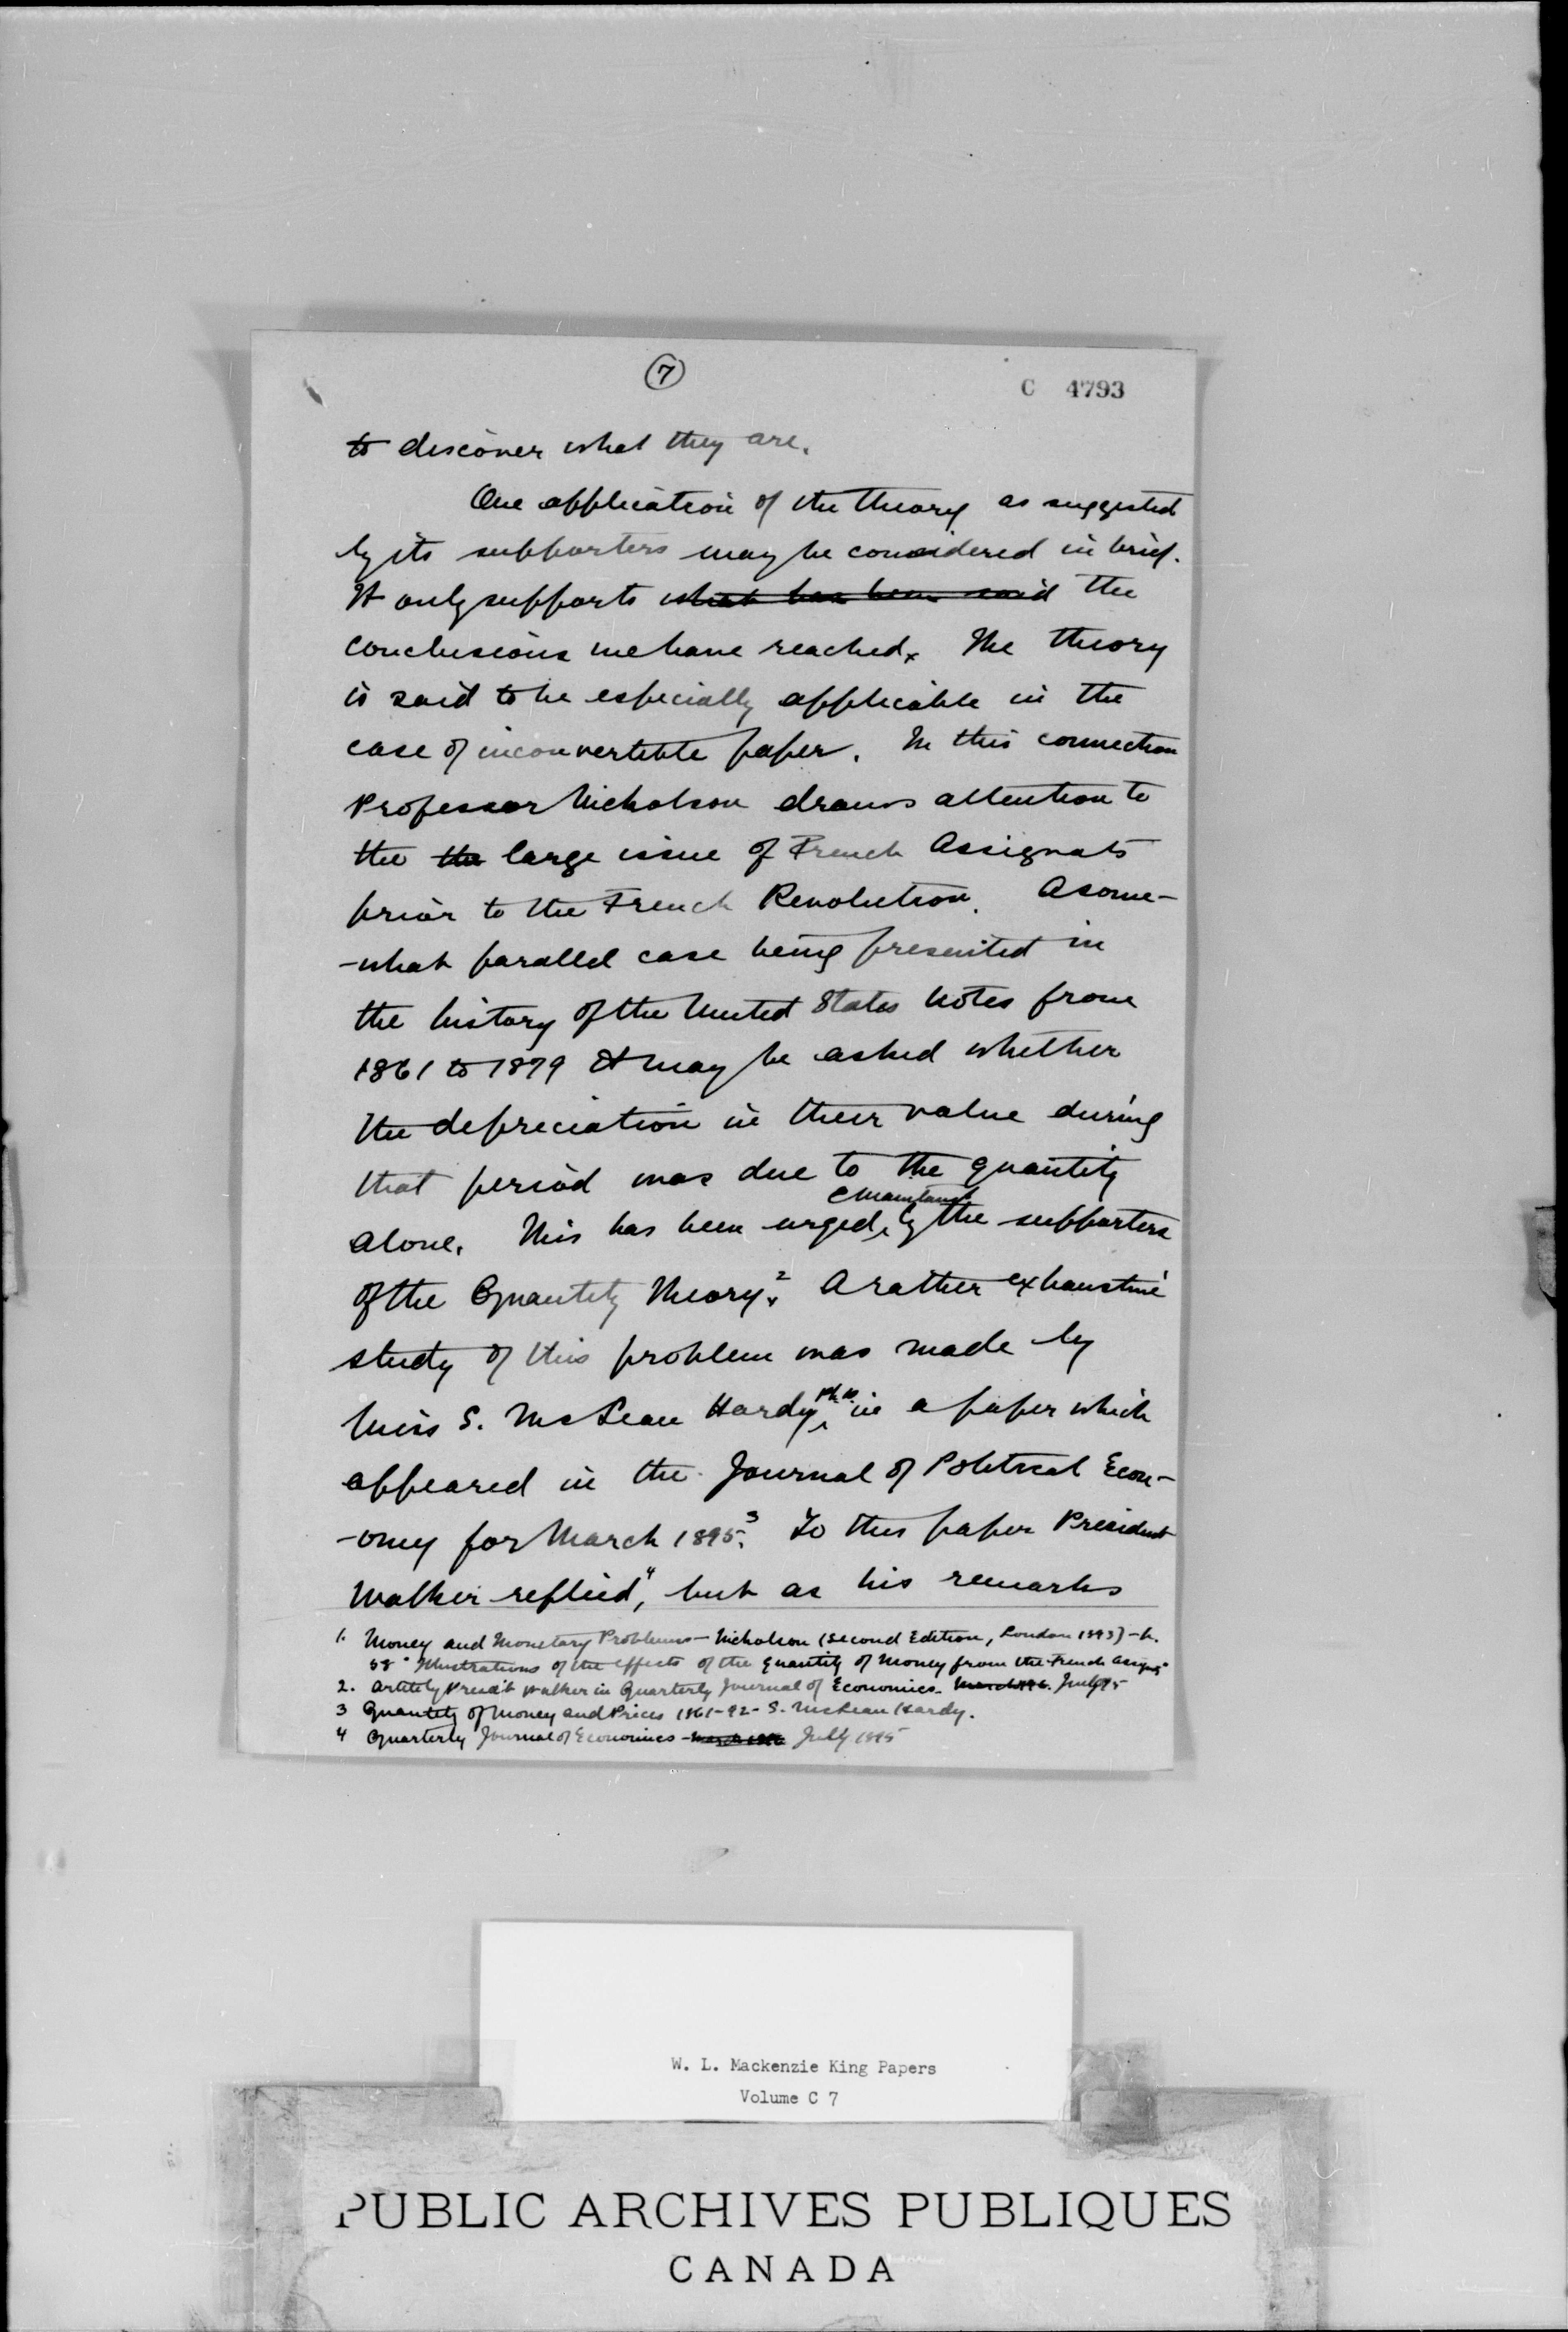 7
C 4793
to discover what they are.
One application of the theory as suggested
by its supporters may be considered in brief.
It only supports what has been said the
conclusions we have reached. The theory
is said to be especially applicable in the
case of inconvertible paper. In this connection
Professor Nicholson draws attention to
the the large issue of French Assignats
prior to the French Revolution. A some-
-what parallel case being presented in
the history of the United States Notes from
1861 to 1879 it may be asked whether
the depreciation in their value during
that period was due to the quantity
& maintained
alone. This has been urged by the supporters
of the Quantity Theory.2 A rather exhaustive
study of this problem was made by
Miss S. McLean Hardy Ph.D. in a paper which
appeared in the Journal of Political Econ-
-omy for March 1895.3 To this paper President
Walker replied,4 but as his remarks
1. Money and Monetary Problems - Nicholson (Second Edition, London 1893) - p.
58 "Illustrations of the effects of the Quantity of Money from the French Assig
2. Article by Presid't Walker in Quarterly Journal of Economics - March 1896. July 95
3 Quantity of Money and Prices 1861-92 - S. McLean Hardy.
4 Quarterly Journal of Economics - March 1896 July 1895
W. L. Mackenzie King Papers
Volume C 7
PUBLIC ARCHIVES PUBLIQUES
CANADA